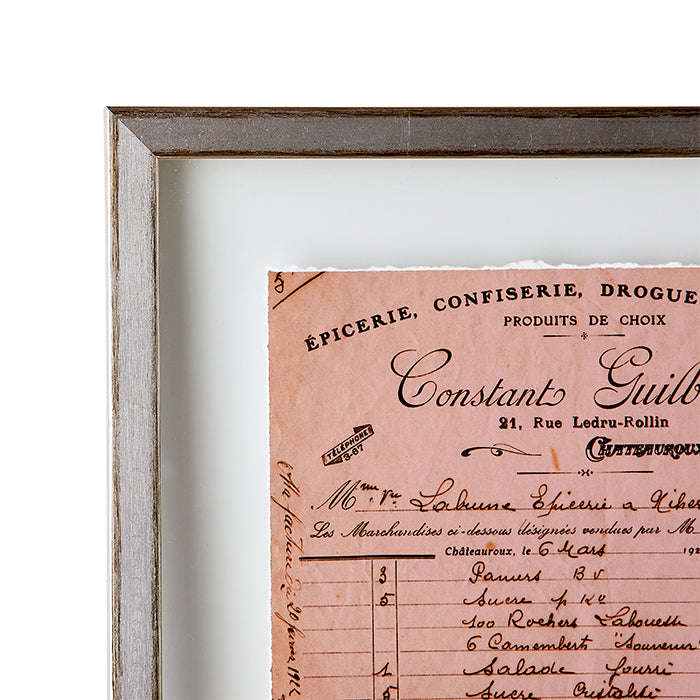 ÉPICERIE, CONFISERIE, DROGUE
PRODUITS DE CHOIX
Constant Guilb
21, Rue Ledru-Rollin
CHATEAUROUX
TÉLÉPHONE
3-67
Mme Vve Labrune Epicerie a
Les Marchandises ci-dessous désignées vendues par M
Châteauroux, le 6 Mars 192
3 Paniers B V
5 Sucre p
100 Rochers Labouesse
6 Camemberts "Souvenir"
1 Salade fourri
5 Sucre Cristalisé
facture du 20 février 1922